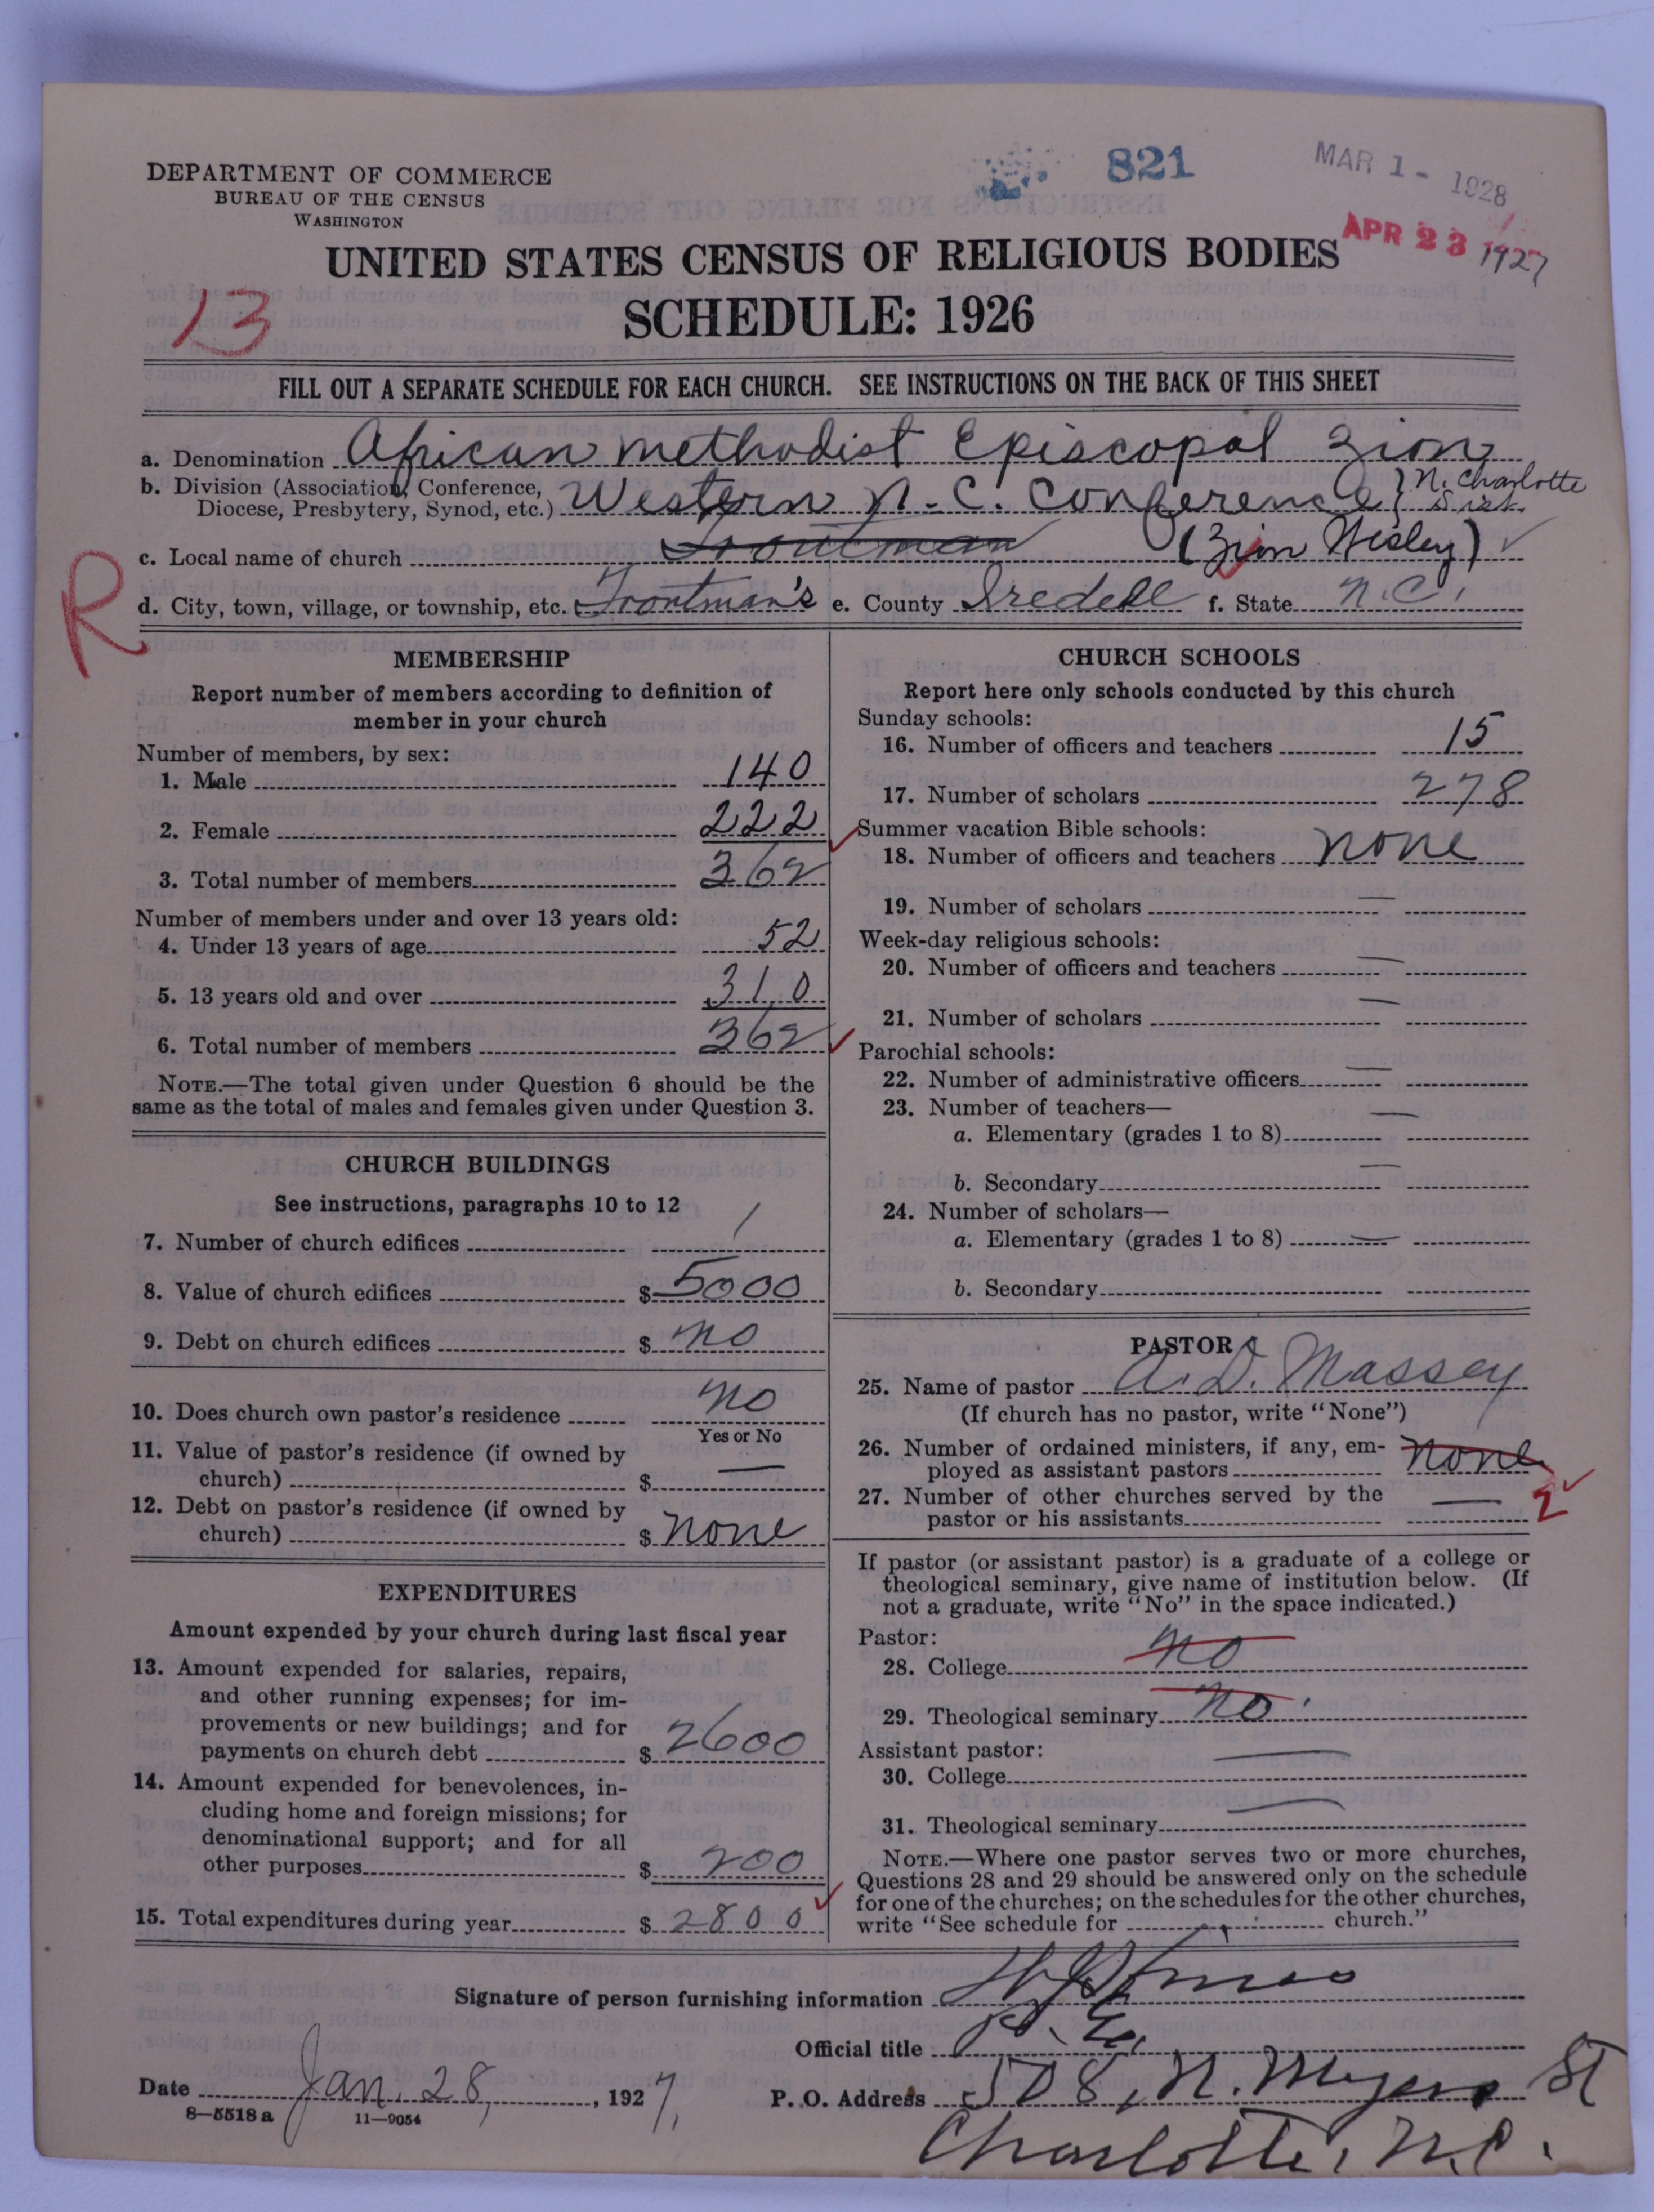 821
MAR 1 - 1928
APR 23 1927
DEPARTMENT OF COMMERCE
BUREAU OF THE CENSUS
WASHINGTON
UNITED STATES CENSUS OF RELIGIOUS BODIES
13
SCHEDULE: 1926
FILL OUT A SEPARATE SCHEDULE FOR EACH CHURCH. SEE INSTRUCTIONS ON THE BACK OF THIS SHEET
a. Denomination African Methodist Episcopal Zion
b. Division (Association, Conference, Diocese, Presbytery, Synod, etc.) Western N.C. Conference } N. Charlotte Dist.
c. Local name of church Troutman (Zion Wesley)
R
d. City, town, village, or township, etc. Troutman's e. County Iredell f. State N.C.
MEMBERSHIP
Report number of members according to definition of
member in your church
Number of members, by sex:
1. Male 140
2. Female 222
3. Total number of members 362
Number of members under and over 13 years old:
4. Under 13 years of age 52
5. 13 years old and over 310
6. Total number of members 362
NOTE.—The total given under Question 6 should be the
same as the total of males and females given under Question 3.
CHURCH BUILDINGS
See instructions, paragraphs 10 to 12
7. Number of church edifices 1
8. Value of church edifices $ 5000
9. Debt on church edifices $ no
10. Does church own pastor's residence no
Yes or No
11. Value of pastor's residence (if owned by
church) $ —
12. Debt on pastor's residence (if owned by
church) $ none
EXPENDITURES
Amount expended by your church during last fiscal year
13. Amount expended for salaries, repairs,
and other running expenses; for im-
provements or new buildings; and for
payments on church debt $ 2600
14. Amount expended for benevolences, in-
cluding home and foreign missions; for
denominational support; and for all
other purposes $ 200
15. Total expenditures during year $ 2800
CHURCH SCHOOLS
Report here only schools conducted by this church
Sunday schools:
16. Number of officers and teachers 15
17. Number of scholars 278
Summer vacation Bible schools:
18. Number of officers and teachers none
19. Number of scholars —
Week-day religious schools:
20. Number of officers and teachers —
21. Number of scholars —
Parochial schools:
22. Number of administrative officers —
23. Number of teachers—
a. Elementary (grades 1 to 8) —
b. Secondary —
24. Number of scholars—
a. Elementary (grades 1 to 8) —
b. Secondary
PASTOR
25. Name of pastor A. D. Massey
(If church has no pastor, write "None")
26. Number of ordained ministers, if any, em-
ployed as assistant pastors none
27. Number of other churches served by the
pastor or his assistants — 2
If pastor (or assistant pastor) is a graduate of a college or
theological seminary, give name of institution below. (If
not a graduate, write "No" in the space indicated.)
Pastor:
28. College no
29. Theological seminary no
Assistant pastor:
30. College —
31. Theological seminary —
NOTE.—Where one pastor serves two or more churches,
Questions 28 and 29 should be answered only on the schedule
for one of the churches; on the schedules for the other churches,
write "See schedule for church."
Signature of person furnishing information
Official title P. E.
Date Jan. 28, 1927. P. O. Address 508, N. Myers St
8—5518 a 11—9054
Charlotte, N.C.